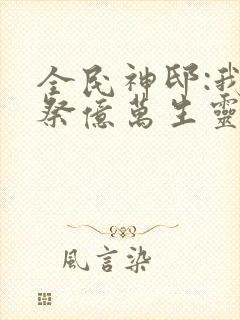 全民神邸:我
祭億萬生靈
風言染